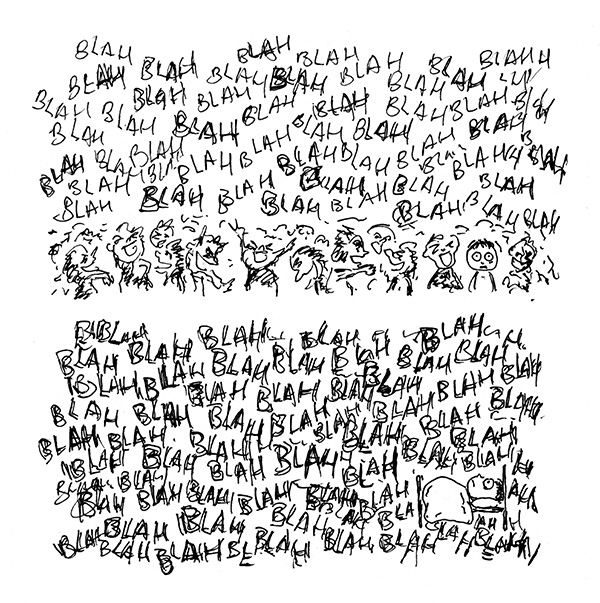 BLAH BLAH BLAH BLAH BLAH
BLAH BLAH BLAH BLAH BLAH BLAH
BLAH BLAH BLAH BLAH BLAH BLAH BLAH
BLAH BLAH BLAH BLAH BLAH BLAH
BLAH BLAH BLAH BLAH BLAH BLAH BLAH BLAH
BLAH BLAH BLAH BLAH BLAH BLAH
BLAH BLAH BLAH BLAH BLAH BLAH BLAH
BLAH BLAH BLAH BLAH BLAH
BLAH BLAH BLAH BLAH BLAH BLAH BLAH
BLAH BLAH BLAH BLAH BLAH BLAH BLAH
BLAH BLAH BLAH BLAH BLAH BLAH BLAH
BLAH BLAH BLAH BLAH BLAH BLAH
BLAH BLAH BLAH BLAH BLAH BLAH BLAH
BLAH BLAH BLAH BLAH BLAH
BLAH BLAH BLAH BLAH BLAH BLAH
BLAH BLAH BLAH BLAH BLAH
BLAH BLAH BLAH BLAH BLAH BLAH BLAH